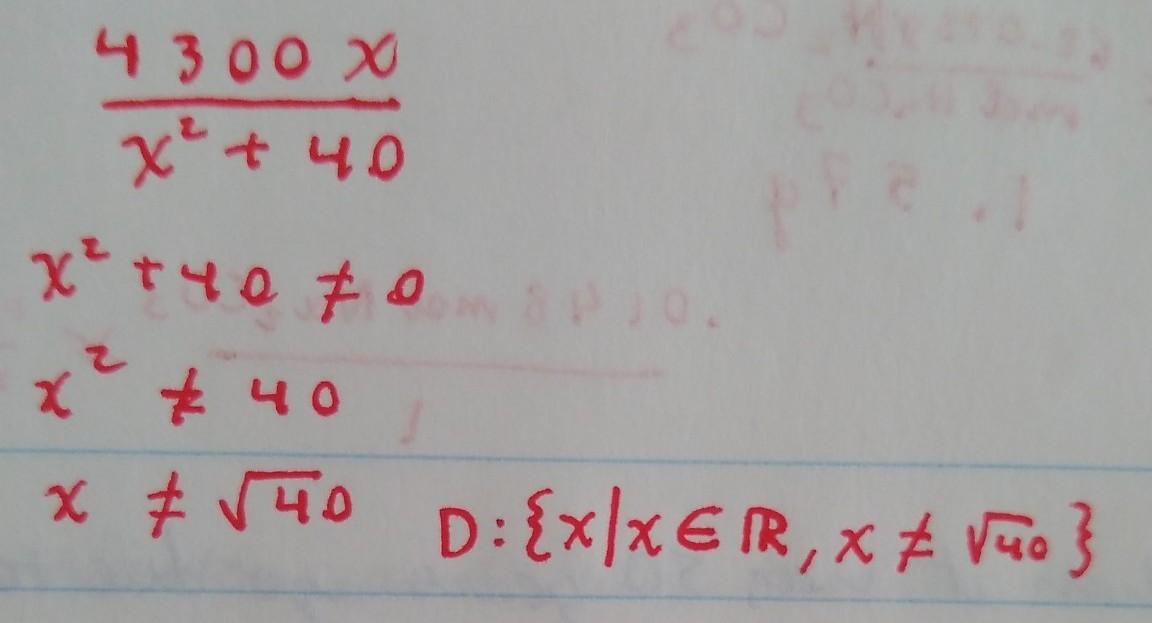 4300x
x² + 40
x² + 40 ≠ 0
x² ≠ 40
x ≠ √40
D: {x|x ∈ ℝ, x ≠ √40}